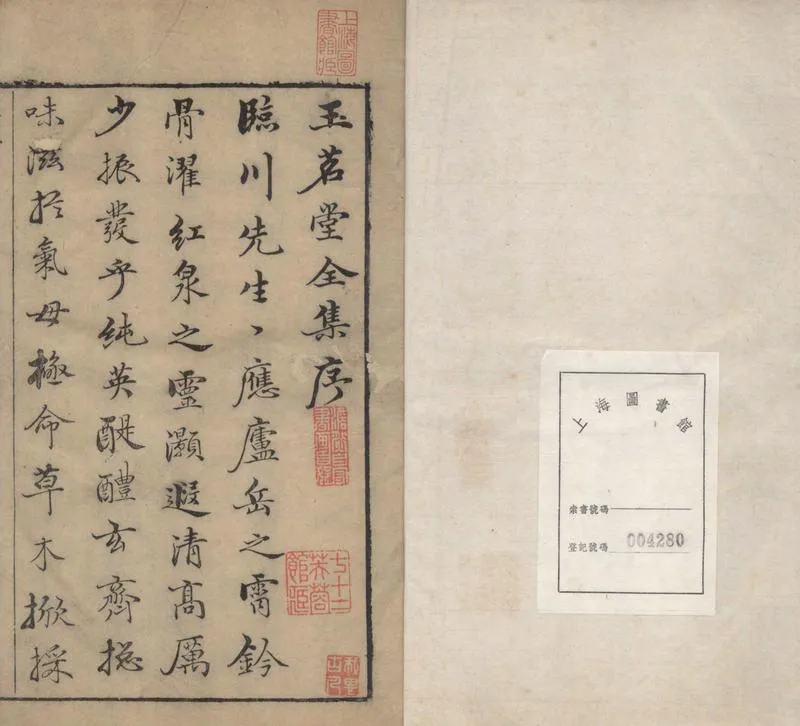 玉茗堂全集序
臨川先生丶應廬岳之霄鈐
骨濯紅泉之靈灝遐清高厲
少振發乎純英醍醴玄齊挹
味滋於氣母極命草木掀採
上海圖書館藏
七十二芙蓉館藏
上海圖書館
索書號碼
登記號碼 004280